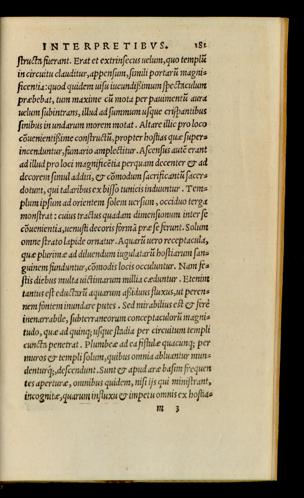 INTERPRETIBVS. 181
structa fuerant. Erat et extrinsecus uelum, quo templũ
in circuitu clauditur, appensum, simili portarũ magni-
ficentia: quod quidem uisu iucundissimum spectaculum
præbebat, tum maxime cũ mota per pauimentũ aura
uelum subintrans, illud ad summum usque crispantibus
sinibus in undarum morem motat. Altare illic pro loco
cõuenientissime constructũ, propter hostias quæ super-
incenduntur, fumario amplectitur. Ascensus autē erant
ad illud pro loci magnificētia perquam decenter & ad
decorem simul additi, & cõmodum sacrificantũ sacer-
dotum, qui talaribus ex bisso tunicis induuntur. Tem-
plum ipsum ad orientem solem uersum, occiduo terga
monstrat: cuius tractus quædam dimensionum inter se
cõuenientia, uenusti decoris formã præ se ferunt. Solum
omne strato lapide ornatur. Aquarũ uero receptacula,
quæ plurimæ ad diluendum iugulatarũ hostiarum san-
guinem funduntur, cõmodis locis occuluntur. Nam fe-
stis diebus multa uictimarum millia cæduntur. Etenim
tantus est eductarũ aquarum aßiduus fluxus, ut peren-
nem fontem inundare putes. Sed mirabilius est & ferè
inenarrabile, subterraneorum conceptaculorũ magni-
tudo, quæ ad quinq; usque stadia per circuitum templi
cuncta penetrat. Plumbeæ ad ea fistulæ quacunq; per
muros & templi solum, quibus omnia abluantur mun-
denturq́;, descendunt. Sunt & apud aræ basim frequen
tes aperturæ, omnibus quidem, nisi ijs qui ministrant,
incognitæ, quarum influxu & impetu omnis ex hostia-
m 3